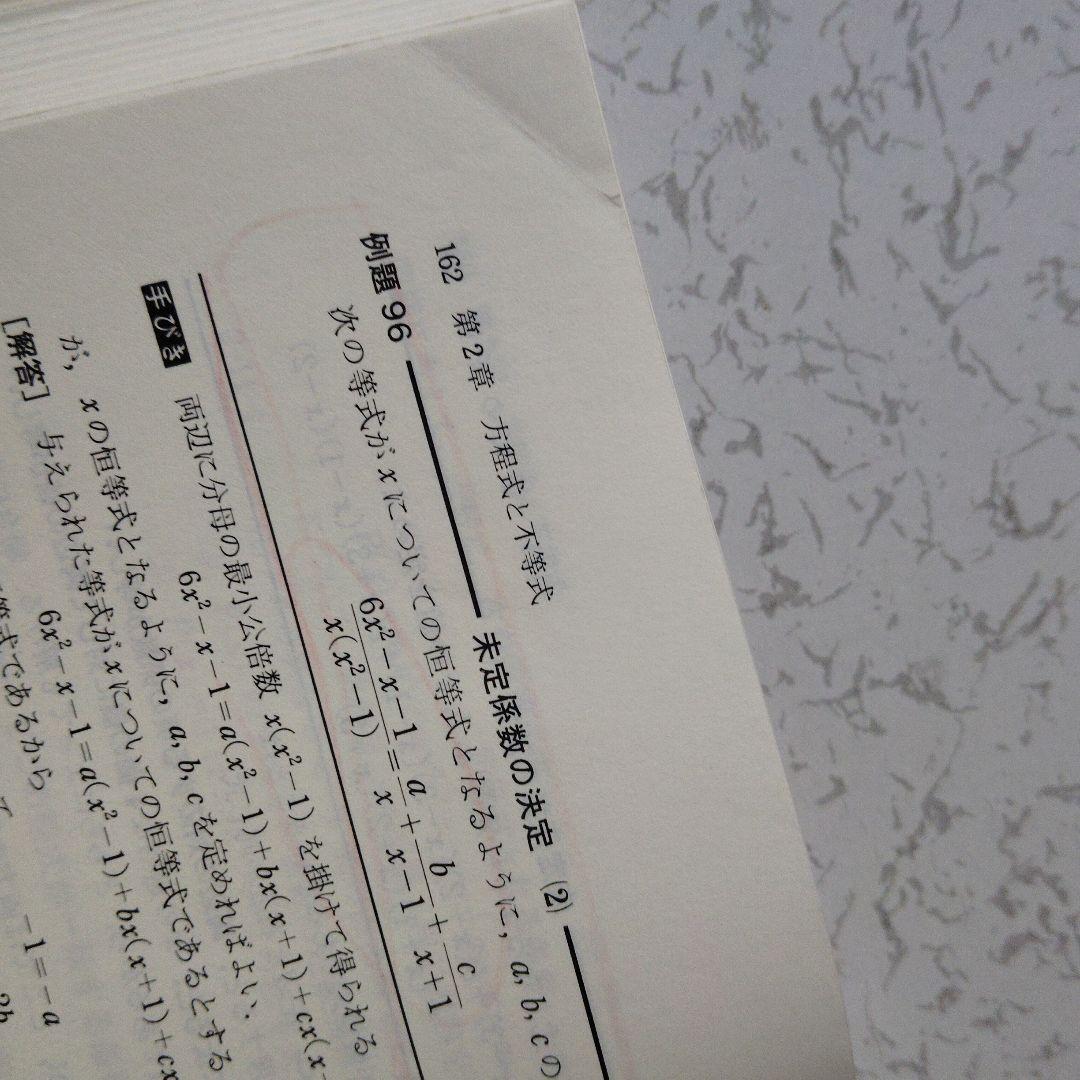 162 第2章 方程式と不等式
例題 96 未定係数の決定 (2)
次の等式が x についての恒等式となるように, a, b, c の
\frac{6x²-x-1}{x(x²-1)} = \frac{a}{x} + \frac{b}{x-1} + \frac{c}{x+1}
手びき 両辺に分母の最小公倍数 x(x²-1) を掛けて得られる
6x²-x-1=a(x²-1)+bx(x+1)+cx(x-
が, x の恒等式となるように, a, b, c を定めればよい.
[解答] 与えられた等式が x についての恒等式であるとする
6x²-x-1=a(x²-1)+bx(x+1)+cx
等式であるから
-1=-a
2b